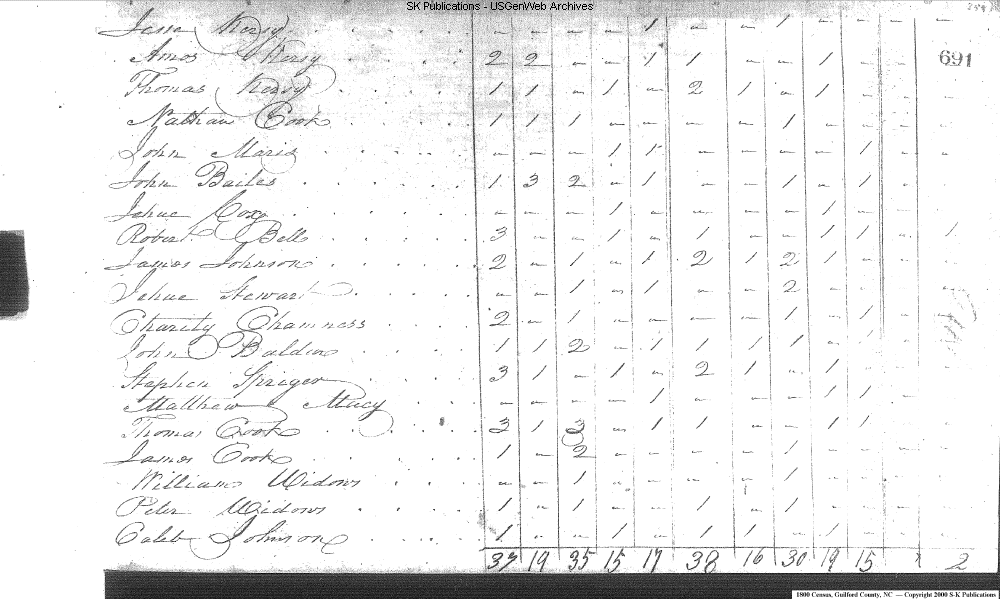 SK Publications - USGenWeb Archives
Jesse Kersy - - - - 1 - - 1 - - - -
Amos Kersy 2 2 - - 1 1 - - 1 - - -
691
Thomas Kersy 1 1 - 1 - 2 1 - 1 - - -
Nathan Cook 1 1 1 - - - - 1 - - - -
John Maris - - - 1 1 - - - - 1 - -
John Bailes 1 3 2 - 1 - - 1 - 1 - -
Jehue Cox - - - 1 - - - - 1 - - -
Robert Bell 3 - - 1 - 1 - - 1 1 - 1
James Johnson 2 - 1 - 1 2 1 2 1 - - -
Jehue Stewart - - 1 - 1 - - 2 - - - -
Charity Chamness 2 - 1 - - - - 1 - 1 - -
John Baldin 1 1 2 - 1 1 1 1 - - - -
Stephen Spriger 3 1 - 1 - 2 1 - 1 - - -
Matthew Macy - - - - 1 - - - 1 1 - -
Thomas Cook 3 1 - 1 1 - - 1 1 - -
James Cook 1 - 2 - - - - 1 - - - -
William Widows - - 1 - - - - 1 - - - -
Peter Widows 1 - 1 - - 1 - 1 - - - -
Caleb Johnson 1 - - 1 - 1 1 - 1 - - -
37 19 35 15 17 38 16 30 19 15 2
1800 Census, Guilford County, NC — Copyright 2000 S-K Publications